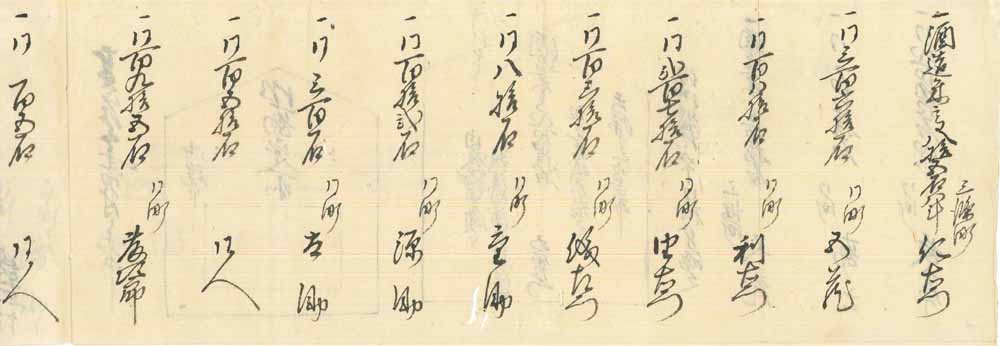 一酒造米高八拾五石 三条町 仁左衛門
一同三百六拾石 同町 五蔵
一同百八拾石 同町 利左衛門
一同弐百七拾石 同町
一同百三拾石 同町
一同八拾石 同町 重助
一同百拾弐石 同町 源助
一同三百石 同町 左助
一同百五拾石 同人
一同百九拾五石 同町
一同百五石 同人